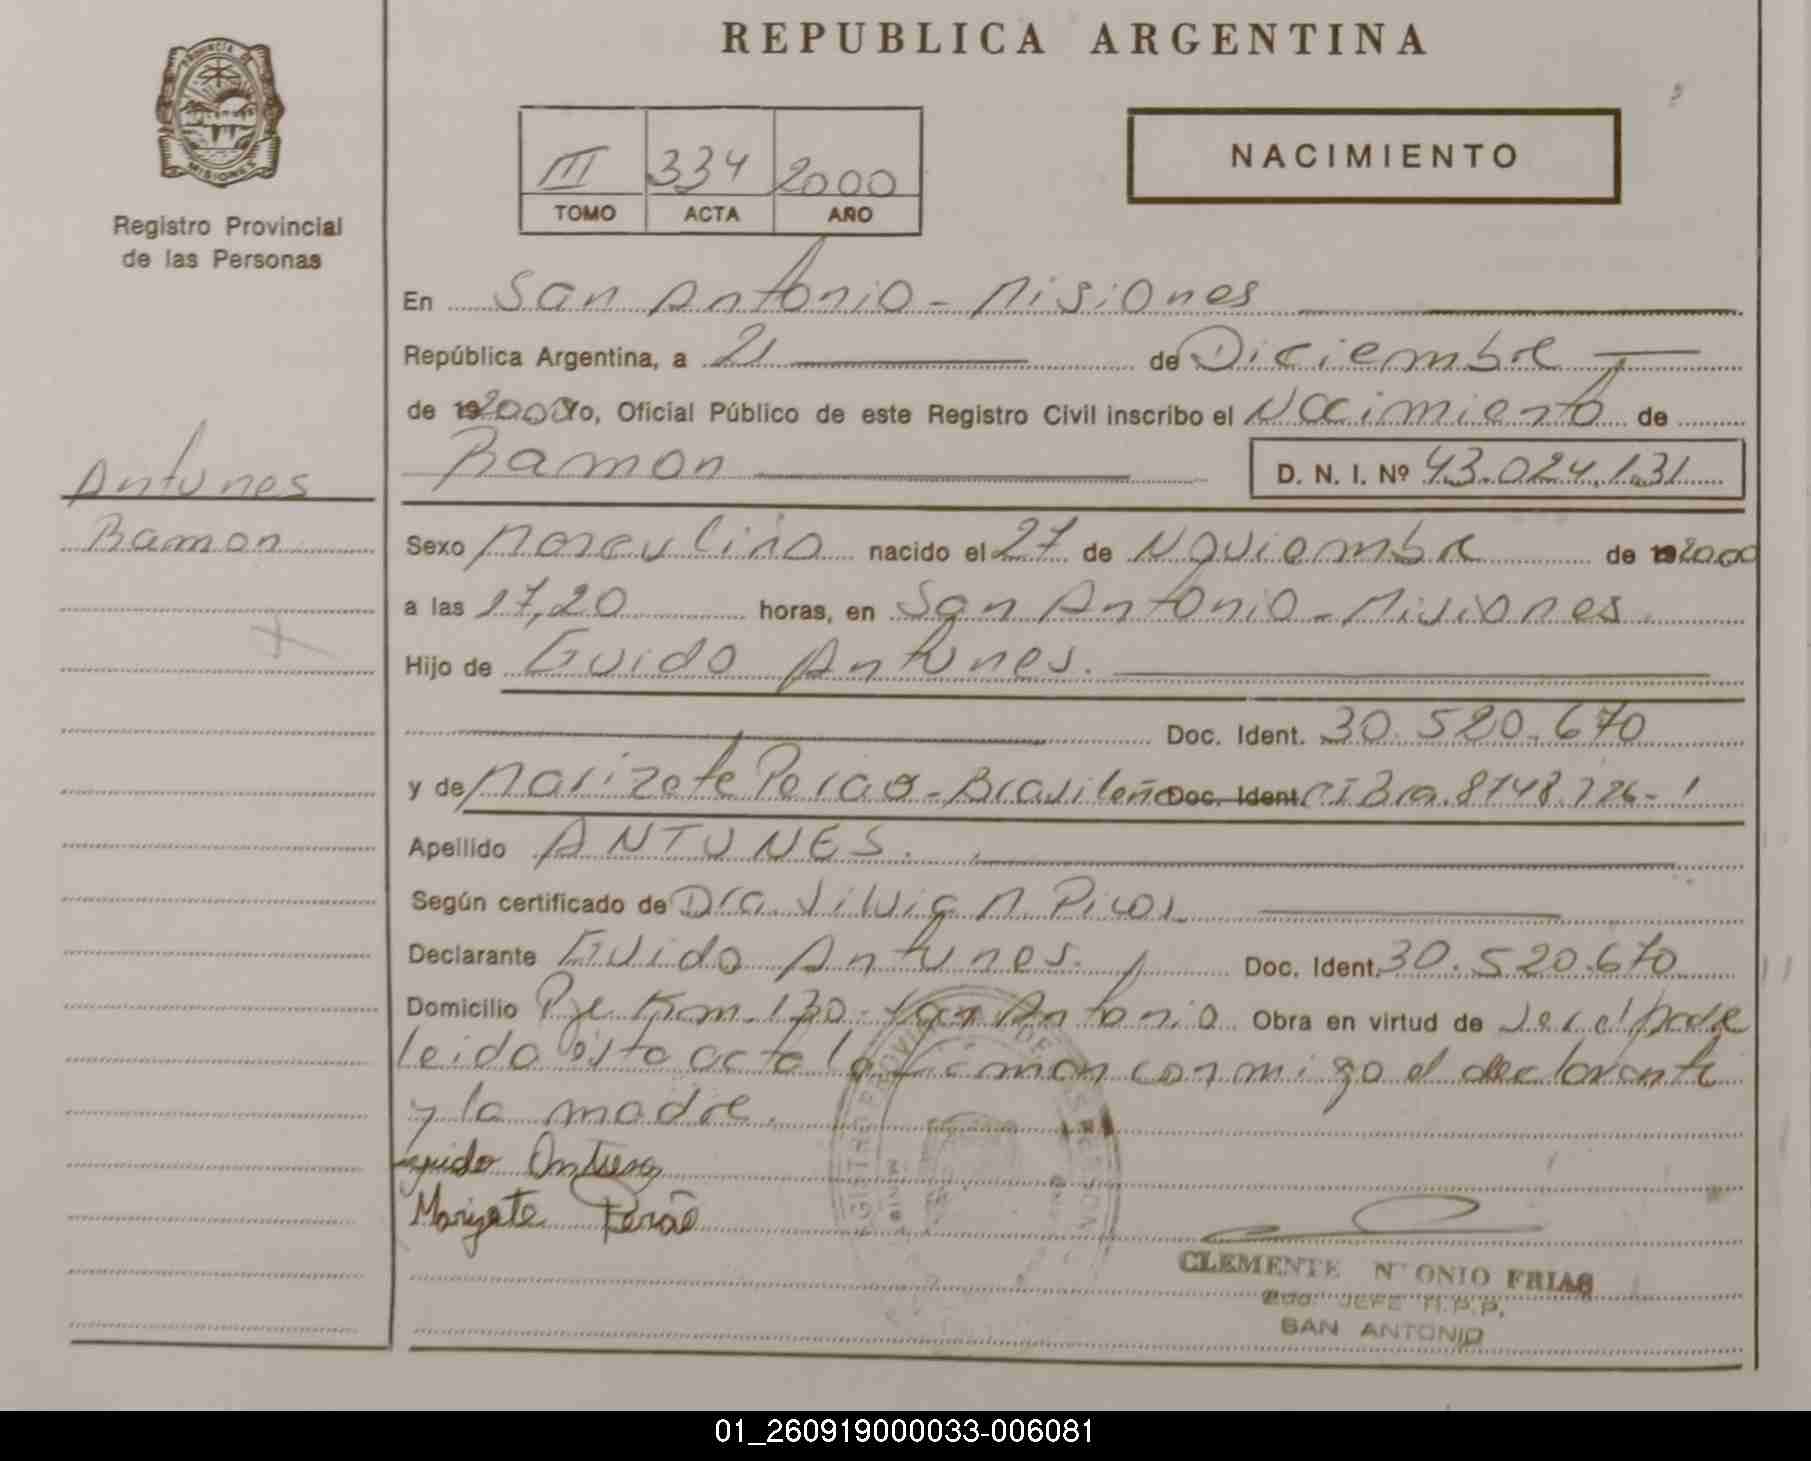 REPUBLICA ARGENTINA
PROVINCIA DE
MISIONES
Registro Provincial
de las Personas
III 334 2000
TOMO ACTA AÑO
NACIMIENTO
En San Antonio - Misiones
República Argentina, a 21 de Diciembre
de 192000 Yo, Oficial Público de este Registro Civil inscribo el Nacimiento de
Ramon D. N. I. Nº 43.024.131
Antunes
Ramon
Sexo Masculino nacido el 27 de Noviembre de 192000
a las 17,20 horas, en San Antonio - Misiones.
Hijo de Guido Antunes.
Doc. Ident. 30.520.670
y de Marizete Perao - Brasileña Doc. Ident. CI Bra. 8148.726-1
Apellido ANTUNES.
Según certificado de Dra. Silvia M. Picoz
Declarante Guido Antunes. Doc. Ident. 30.520.670
Domicilio Pje Km. 130 - San Antonio Obra en virtud de Ser el padre
leida esta acta la firman conmigo el declarante
y la madre.
guido Antunes
Marizete Perão
CLEMENTE N ONIO FRIAS
JEFE R.P.P.
SAN ANTONIO
01_260919000033-006081